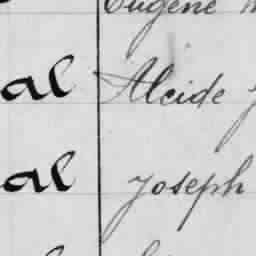 Eugène
al Alcide
al Joseph